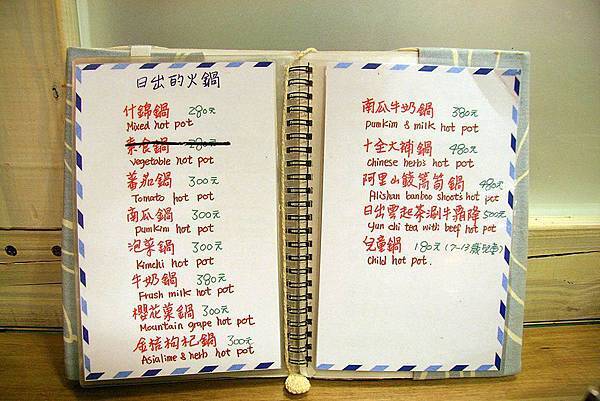 日出的火鍋
什錦鍋 280元
Mixed hot pot
素食鍋 280元
Vegetable hot pot
蕃茄鍋 300元
Tomato hot pot
南瓜鍋 300元
Pumkim hot pot
泡菜鍋 300元
Kimchi hot pot
牛奶鍋 380元
Frush milk hot pot
櫻花菓鍋 300元
Mountain grape hot pot
金桔枸杞鍋 300元
Asialime & herb hot pot
南瓜牛奶鍋 380元
pumkim & milk hot pot
十全大補鍋 480元
chinese herbs hot pot
阿里山籛篙筍鍋 480元
Alishan banboo shoots hot pot
日出雲起茶涮牛霜降 500元
Yun chi tea with beef hot pot
兒童鍋 180元 (7-13歲兒童)
child hot pot.